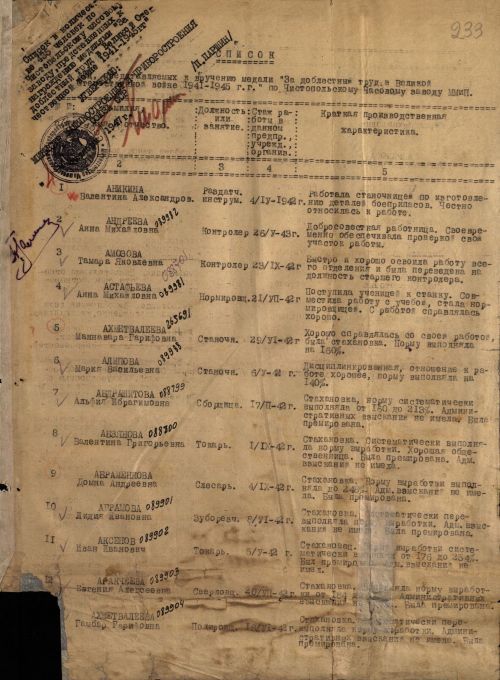 233
/П.ПАРШИН/
СПИСОК
представляемых к вручению медали "За доблестный труд в Великой
Отечественной войне 1941-1945 г.г." по Чистопольскому Часовому заводу ММиП.
1941-1945гг
1947г.
Должность или занятие.
Стаж работы в данном предпр., учрежд., организ.
Краткая производственная характеристика.
2 3 4 5
1 АНИКИНА
Валентина Александров.
Раздатч. инструм. 4/IУ-1942г.
Работала станочницей по изготовлению деталей боеприпасов. Честно
относилась к работе.
2 АНДРЕЕВА 089912
Анна Михайловна
Контролер 26/У-43г.
Добросовестная работница. Своевременно обеспечивала проверкой свой
участок работы.
3
Тамара Яковлевна
Контролер 23/IX-42г
Быстро и хорошо освоила работу всего отделения и была переведена на
должность старшего контролера.
4 АСТАФЬЕВА
Анна Михайловна 089981
Нормировщ. 21/УП-42г
Поступила ученицей к станку. Совместила работу с учебой, стала нормировщицей. С работой справлялась
хорошо.
5 АХМЕТВАЛЕЕВА 265691
Маннавара Гарифовна
Станочн. 29/УI-42г
Хорошо справлялась со своей работой,
была стахановка. Норму выполняла
на 150%.
6
Мария Васильевна
Станочн. 6/У-42 г.
Дисциплинированная, отношение к работе хорошее, норму выполняла на
140%.
7 088799
Альфия Ибрагимовна
Сборщица. 17/П-42г.
Стахановка, норму систематически
выполняла от 150 до 213%. Административных взысканий не имела. Была
премирована.
8 088700
Валентина Григорьевна
Токарь. 1/IX-42г.
Стахановка. Систематически выполняла норму выработки. Хорошая общественница. Была премирована. Адм.
взыскания не имела.
9 АБРАМЕНКОВА
Домна Андреевна
Слесарь. 4/IX-42г.
Стахановка. Норму выработки выполняла до 240%. Адм. взыскания не имела. Была премирована.
10 АБРАМОВА 089901
Лидия Ивановна
Зуборезч. 8/УI-42г.
Стахановка, систематически перевыполняла норму выработки. Адм. взыскания не имела. Была премирована.
11 АКСЕНОВ 089902
Иван Иванович
Токарь. 5/У-42г.
Стахановец. выработки систематически от 176 до 254%.
Был премирован. Адм. взыскания не
имел.
12 089903
Евгения Алексеевна
Сверловщ.
Стахановка. норму выработки
Административных
взысканий Была премирована.
АХМЕТВАЛЕЕВА 089904
Гамбар Гарифовна
Полировщ.
Стахановка. Систематически перевыполняла норму выработки. Административных взыскания не имела. Была
премирована.